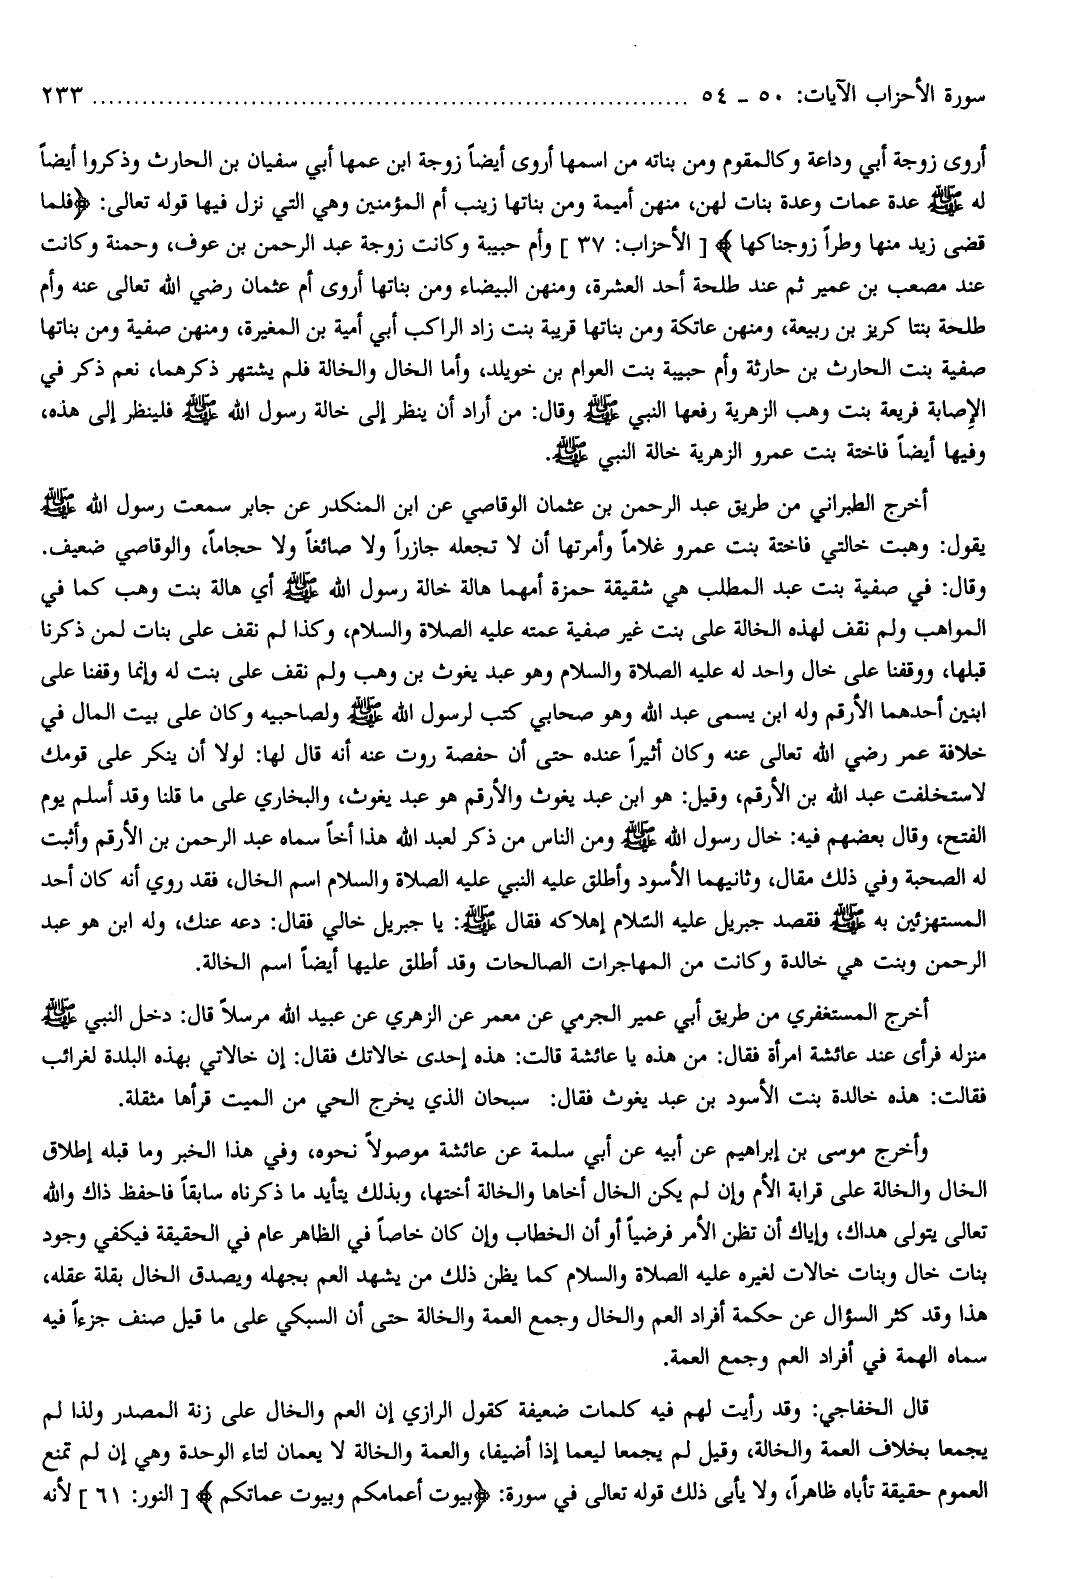 سورة الأحزاب الآيات: ٥٠ ـ ٥٤ ........................................................................ ٢٣٣
أروى زوجة أبي وداعة وكالمقوم ومن بناته من اسمها أروى أيضاً زوجة ابن عمها أبي سفيان بن الحارث وذكروا أيضاً
له ﷺ عدة عمات وعدة بنات لهن، منهن أميمة ومن بناتها زينب أم المؤمنين وهي التي نزل فيها قوله تعالى: ﴿فلما
قضى زيد منها وطراً زوجناكها ﴾ [ الأحزاب: ٣٧ ] وأم حبيبة وكانت زوجة عبد الرحمن بن عوف، وحمنة وكانت
عند مصعب بن عمير ثم عند طلحة أحد العشرة، ومنهن البيضاء ومن بناتها أروى أم عثمان رضي الله تعالى عنه وأم
طلحة بنتا كريز بن ربيعة، ومنهن عاتكة ومن بناتها قريبة بنت زاد الراكب أبي أمية بن المغيرة، ومنهن صفية ومن بناتها
صفية بنت الحارث بن حارثة وأم حبيبة بنت العوام بن خويلد، وأما الخال والخالة فلم يشتهر ذكرهما، نعم ذكر في
الإصابة فريعة بنت وهب الزهرية رفعها النبي ﷺ وقال: من أراد أن ينظر إلى خالة رسول الله ﷺ فلينظر إلى هذه،
وفيها أيضاً فاختة بنت عمرو الزهرية خالة النبي ﷺ.
أخرج الطبراني من طريق عبد الرحمن بن عثمان الوقاصي عن ابن المنكدر عن جابر سمعت رسول الله ﷺ
يقول: وهبت خالتي فاختة بنت عمرو غلاماً وأمرتها أن لا تجعله جازراً ولا صائغاً ولا حجاماً، والوقاصي ضعيف.
وقال: في صفية بنت عبد المطلب هي شقيقة حمزة أمهما هالة خالة رسول الله ﷺ أي هالة بنت وهب كما في
المواهب ولم نقف لهذه الخالة على بنت غير صفية عمته عليه الصلاة والسلام، وكذا لم نقف على بنات لمن ذكرنا
قبلها، ووقفنا على خال واحد له عليه الصلاة والسلام وهو عبد يغوث بن وهب ولم نقف على بنت له وإنما وقفنا على
ابنين أحدهما الأرقم وله ابن يسمى عبد الله وهو صحابي كتب لرسول الله ﷺ ولصاحبيه وكان على بيت المال في
خلافة عمر رضي الله تعالى عنه وكان أثيراً عنده حتى أن حفصة روت عنه أنه قال لها: لولا أن ينكر على قومك
لاستخلفت عبد الله بن الأرقم، وقيل: هو ابن عبد يغوث والأرقم هو عبد يغوث، والبخاري على ما قلنا وقد أسلم يوم
الفتح، وقال بعضهم فيه: خال رسول الله ﷺ ومن الناس من ذكر لعبد الله هذا أخاً سماه عبد الرحمن بن الأرقم وأثبت
له الصحبة وفي ذلك مقال، وثانيهما الأسود وأطلق عليه النبي عليه الصلاة والسلام اسم الخال، فقد روي أنه كان أحد
المستهزئين به ﷺ فقصد جبريل عليه السّلام إهلاكه فقال ﷺ: يا جبريل خالي فقال: دعه عنك، وله ابن هو عبد
الرحمن وبنت هي خالدة وكانت من المهاجرات الصالحات وقد أطلق عليها أيضاً اسم الخالة.
أخرج المستغفري من طريق أبي عمير الجرمي عن معمر عن الزهري عن عبيد الله مرسلاً قال: دخل النبي ﷺ
منزله فرأى عند عائشة امرأة فقال: من هذه يا عائشة قالت: هذه إحدى خالاتك فقال: إن خالاتي بهذه البلدة لغرائب
فقالت: هذه خالدة بنت الأسود بن عبد يغوث فقال: سبحان الذي يخرج الحي من الميت قرأها مثقلة.
وأخرج موسى بن إبراهيم عن أبيه عن أبي سلمة عن عائشة موصولاً نحوه، وفي هذا الخبر وما قبله إطلاق
الخال والخالة على قرابة الأم وإن لم يكن الخال أخاها والخالة أختها، وبذلك يتأيد ما ذكرناه سابقاً فاحفظ ذاك والله
تعالى يتولى هداك، وإياك أن تظن الأمر فرضياً أو أن الخطاب وإن كان خاصاً في الظاهر عام في الحقيقة فيكفي وجود
بنات خال وبنات خالات لغيره عليه الصلاة والسلام كما يظن ذلك من يشهد العم بجهله ويصدق الخال بقلة عقله،
هذا وقد كثر السؤال عن حكمة أفراد العم والخال وجمع العمة والخالة حتى أن السبكي على ما قيل صنف جزءاً فيه
سماه الهمة في أفراد العم وجمع العمة.
قال الخفاجي: وقد رأيت لهم فيه كلمات ضعيفة كقول الرازي إن العم والخال على زنة المصدر ولذا لم
يجمعا بخلاف العمة والخالة، وقيل لم يجمعا ليعما إذا أضيفا، والعمة والخالة لا يعمان لتاء الوحدة وهي إن لم تمنع
العموم حقيقة تأباه ظاهراً، ولا يأبى ذلك قوله تعالى في سورة: ﴿بيوت أعمامكم وبيوت عماتكم ﴾ [ النور: ٦١ ] لأنه